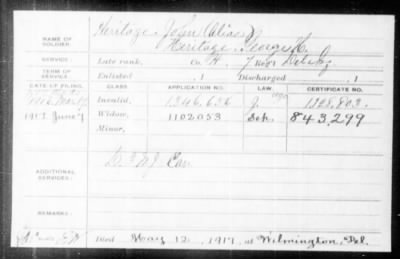 Heritage, John (Alias)
NAME OF SOLDIER: Heritage, George H.
SERVICE: Late rank, Co. H, 7 Reg't Del. Inf.
TERM OF SERVICE: Enlisted , 1 Discharged , 1
DATE OF FILING. CLASS. APPLICATION NO. LAW. CERTIFICATE NO.
Invalid, 1346.636 J. 1128.803.
1917 June 7 Widow, 1102053 843,299
Minor,
ADDITIONAL SERVICES:
REMARKS:
Died May 12, 1917, at Wilmington, Del.